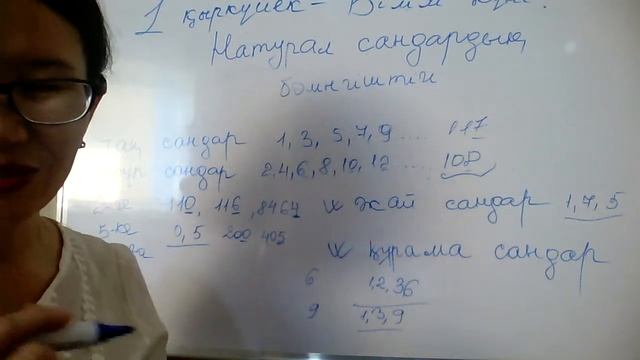 1 қыркүйек - Білім күні.
Натурал сандардың
бөлінгіштігі
тақ сандар 1, 3, 5, 7, 9 .... 117
жұп сандар 2, 4, 6, 8, 10, 12 .... 108
110, 116, 8464 жай сандар 1, 7, 5
5-ке 0, 5 200 405
құрама сандар
6 1,2,36
9 1,3,9